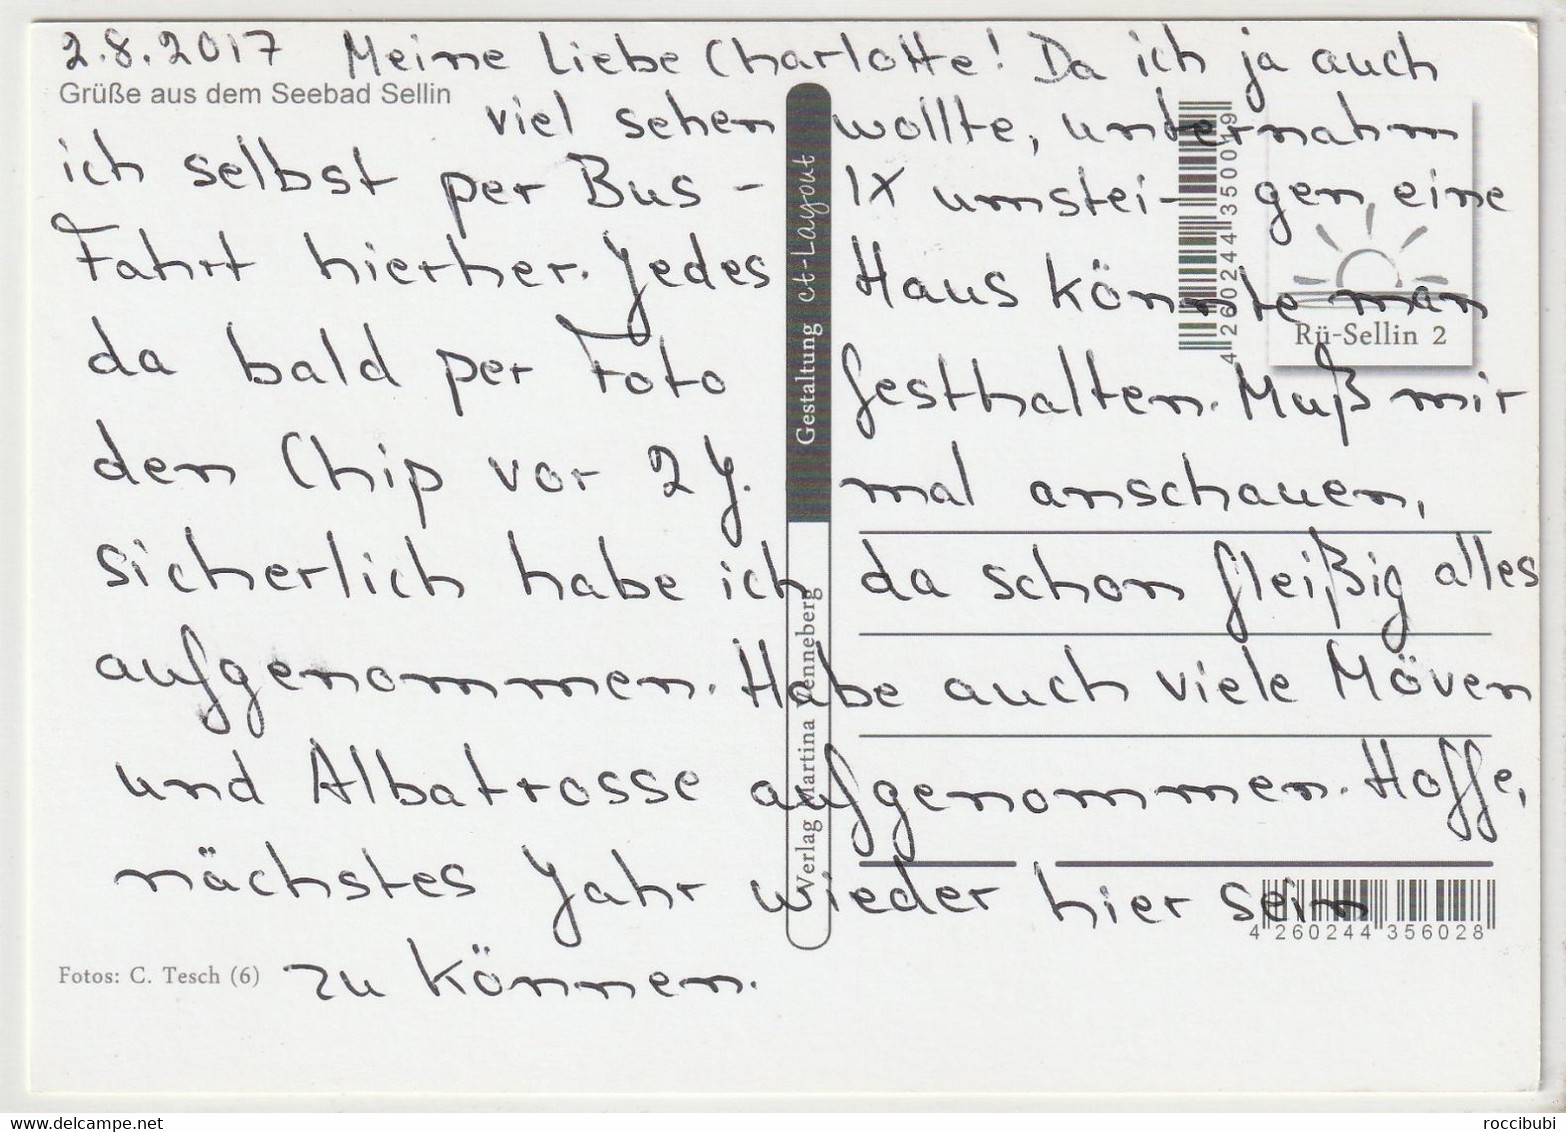 2.8.2017 Meine liebe Charlotte! Da ich ja auch
Grüße aus dem Seebad Sellin
viel sehen wollte, unternahm
ich selbst per Bus - 1X umstei- gen eine
Fahrt hierher. Jedes Haus könnte man
da bald per Foto festhalten. Muß mir
den Chip vor 2 J. mal anschauen,
sicherlich habe ich da schon fleißig alles
aufgenommen. Habe auch viele Möven
und Albatrosse aufgenommen. Hoffe,
nächstes Jahr wieder hier sein
zu können.
Fotos: C. Tesch (6)
Gestaltung ct-Layout
Verlag Martina Denneberg
4 260244 350019
Rü-Sellin 2
4 260244 356028
roccibubi